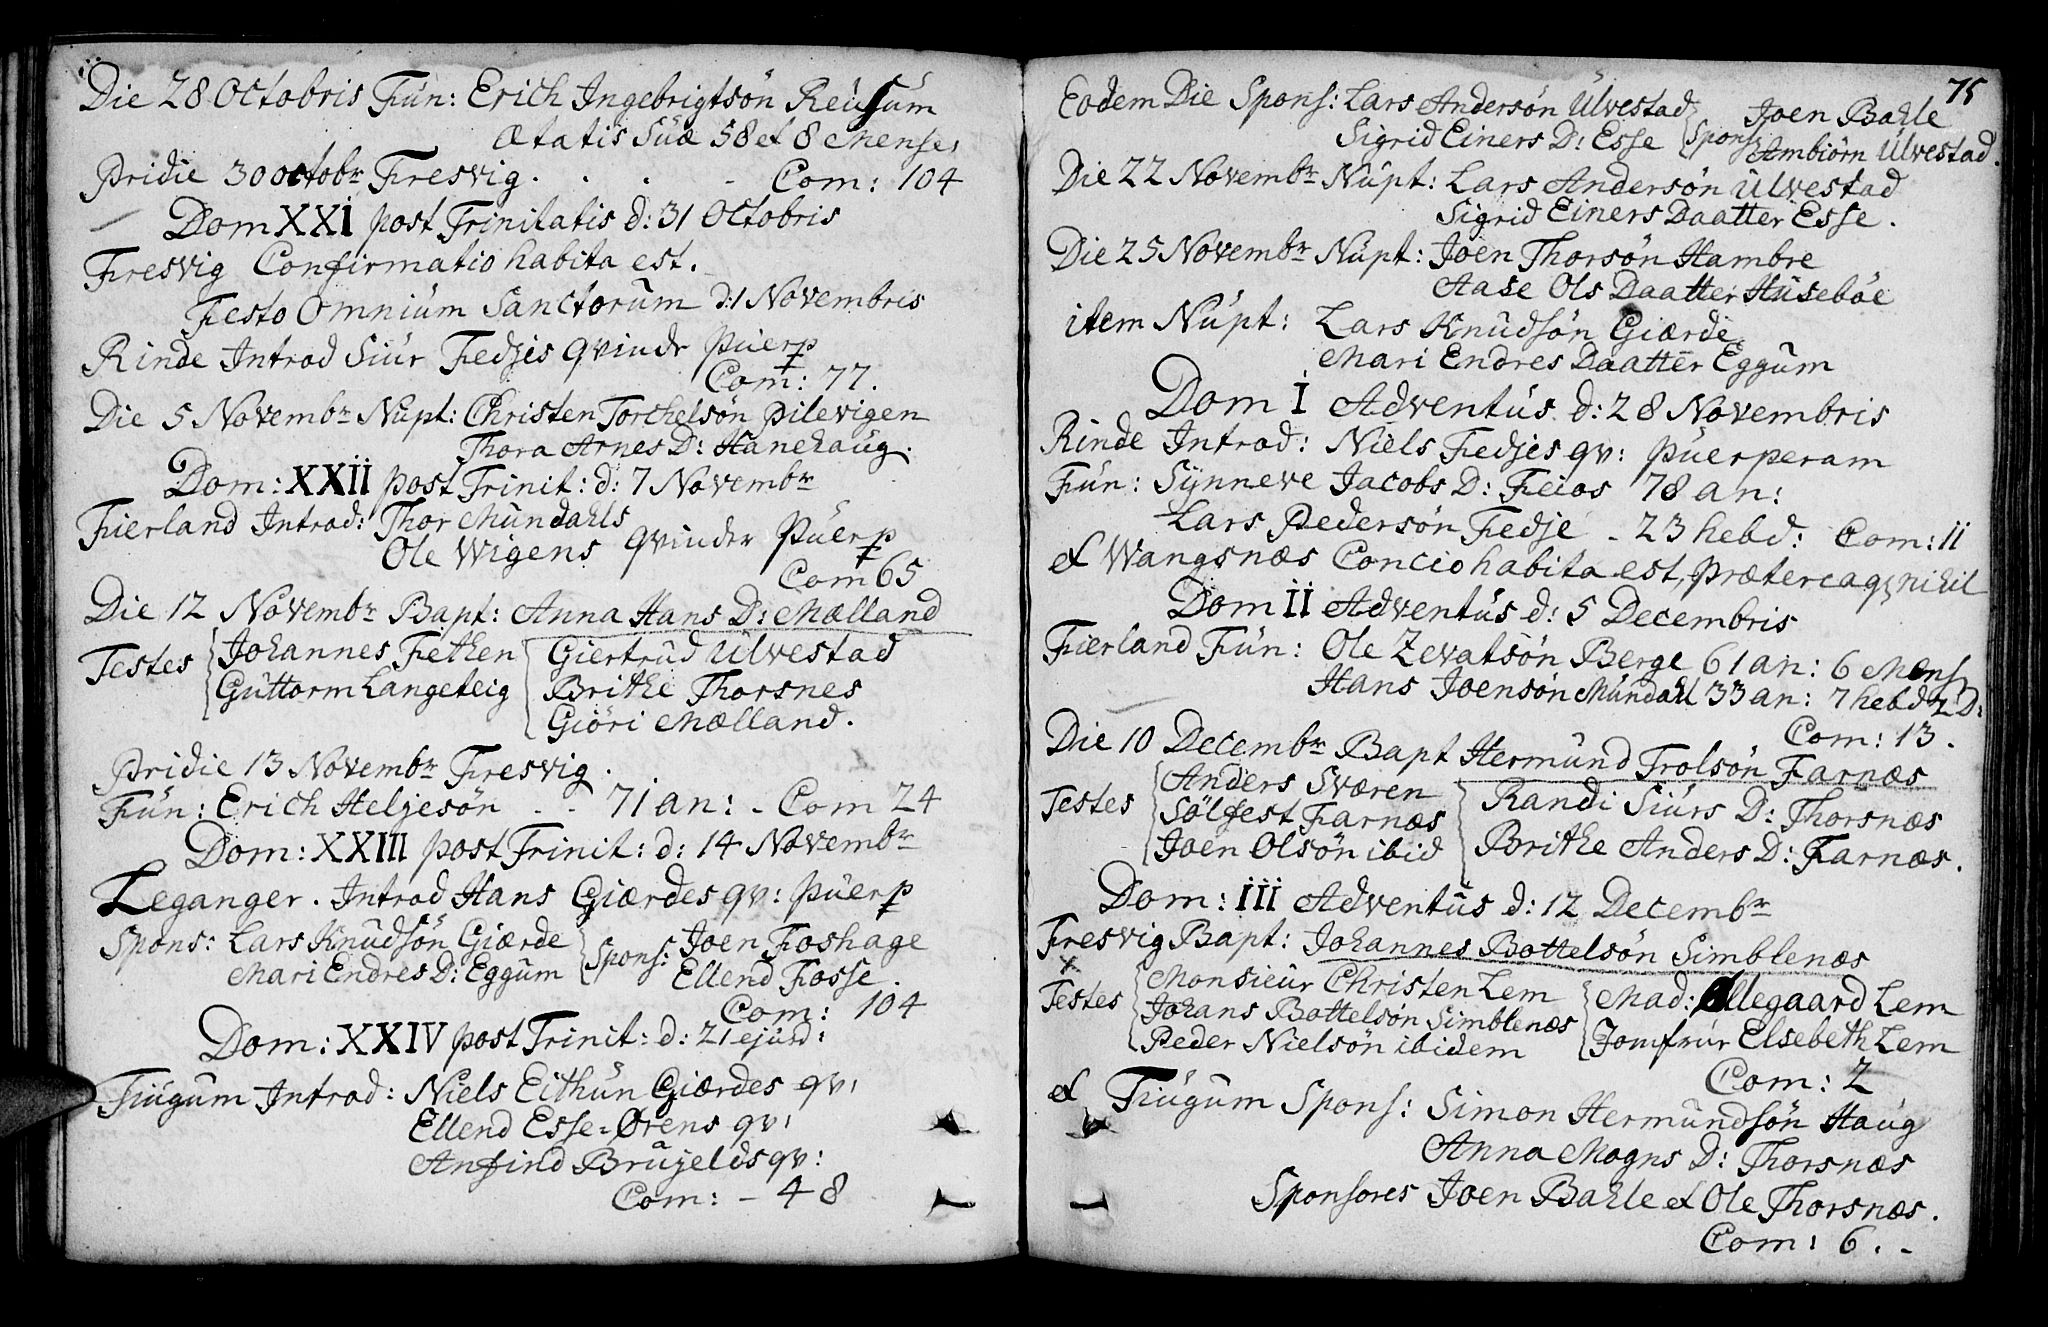 Die 28 Octobris Fün: Erich Ingebrigtsön Reüsum
Ætatis Süæ 58 et 8 Mense,
Pridie 30 octobr Fresvig . . . - Com: 104
Dom XXI post Trinitatis d: 31 Octobris
Fresvig Confirmatio habita est.
Festo Omniüm Sanctorum d: 1 Novembris
Rinde Introd Siür Fedjes qvinde Püerp
Com: 77.
Die 5 Novembr Nüpt: Christen Torchelsön Pilevigen
Thora Arnes D: Hanehaüg.
Dom: XXII post Trinit: d: 7 Novembr
Fierland Introd: Thor Mündahls
Ole Wigens qvinder Püerp
Com 65
Die 12 Novembr Bapt: Anna Hans D: Mælland
Testes Johannes Fethen Giertrüd Ulvestad
Güttorm Langeteig Brithe Thorsnes
Giöri Mælland.
Pridie 13 Novembr Fresvig.
Fün: Erich Heljesön - - 71 an: - Com 24
Dom: XXIII post Trinit: d: 14 Novembr
Leganger. Introd Hans Giærdes qv: Püerp
Spons: Lars Knüdsön Giærde Spons: Joen Foshage
Mari Endres D: Eggüm Ellend Fosse.
Com: 104
Dom: XXIV post Trinit: d: 21 ejusd:
Fiügum Introd: Niels Eithün Giærdes qv:
Ellend Esse-Ørens qv:
Anfind Brüjelds qv:
Com: - 48
75
Eodem Die Spons: Lars Andersön Ulvestad Spons Joen Bahle
Sigrid Einers D: Esse Ambiörn Ulvestad.
Die 22 Novembr Nüpt: Lars Andersön Ulvestad
Sigrid Einers Daatter Esse.
Die 25 Novembr Nüpt: Joen Thorsön Hambre
Aase Ols Daatter Hüseböe
item Nüpt: Lars Knüdsön Giærde
Mari Endres Daatter Eggüm
Dom I Adventüs d: 28 Novembris
Rinde Introd: Niels Fedjes qv: Püerperam
Fün: Sÿnneve Jacobs D: Feios 78 an:
Lars Pedersön Fedje - 23 hebd: Com: 11
et Wangsnæs Concio habita est, Prætereaq, nihil
Dom II Adventüs d: 5 Decembris
Fierland Fün: Ole Zevatsön Berge 61 an: 6 Mens
Hans Joensön Mündahl 33 an: 7 hebd 2 D:
Com: 13.
Die 10 Decembr Bapt Hermünd Trolsön Farnæs
Testes Anders Sværen Randi Siürs D: Thorsnæs
Sölfest Farnæs Brithe Anders D: Farnæs.
Joen Olsön ibid
Dom: III Adventüs d: 12 Decembr
Fresvig Bapt: Johannes Bottelsön Simblenæs
x
Testes Monsieur Christen Lem Mad: Allegaard Lem
Johans Bottelsön Simblenæs Jomfrür Elsebeth Lem
Peder Nielsön ibidem
Com: 2
et Fiügum Spons: Simon Hermündsön Haüg
Anna Mogns D: Thorsnæs
Sponsores Joen Bahle et Ole Thorsnæs.
Com: 6. -